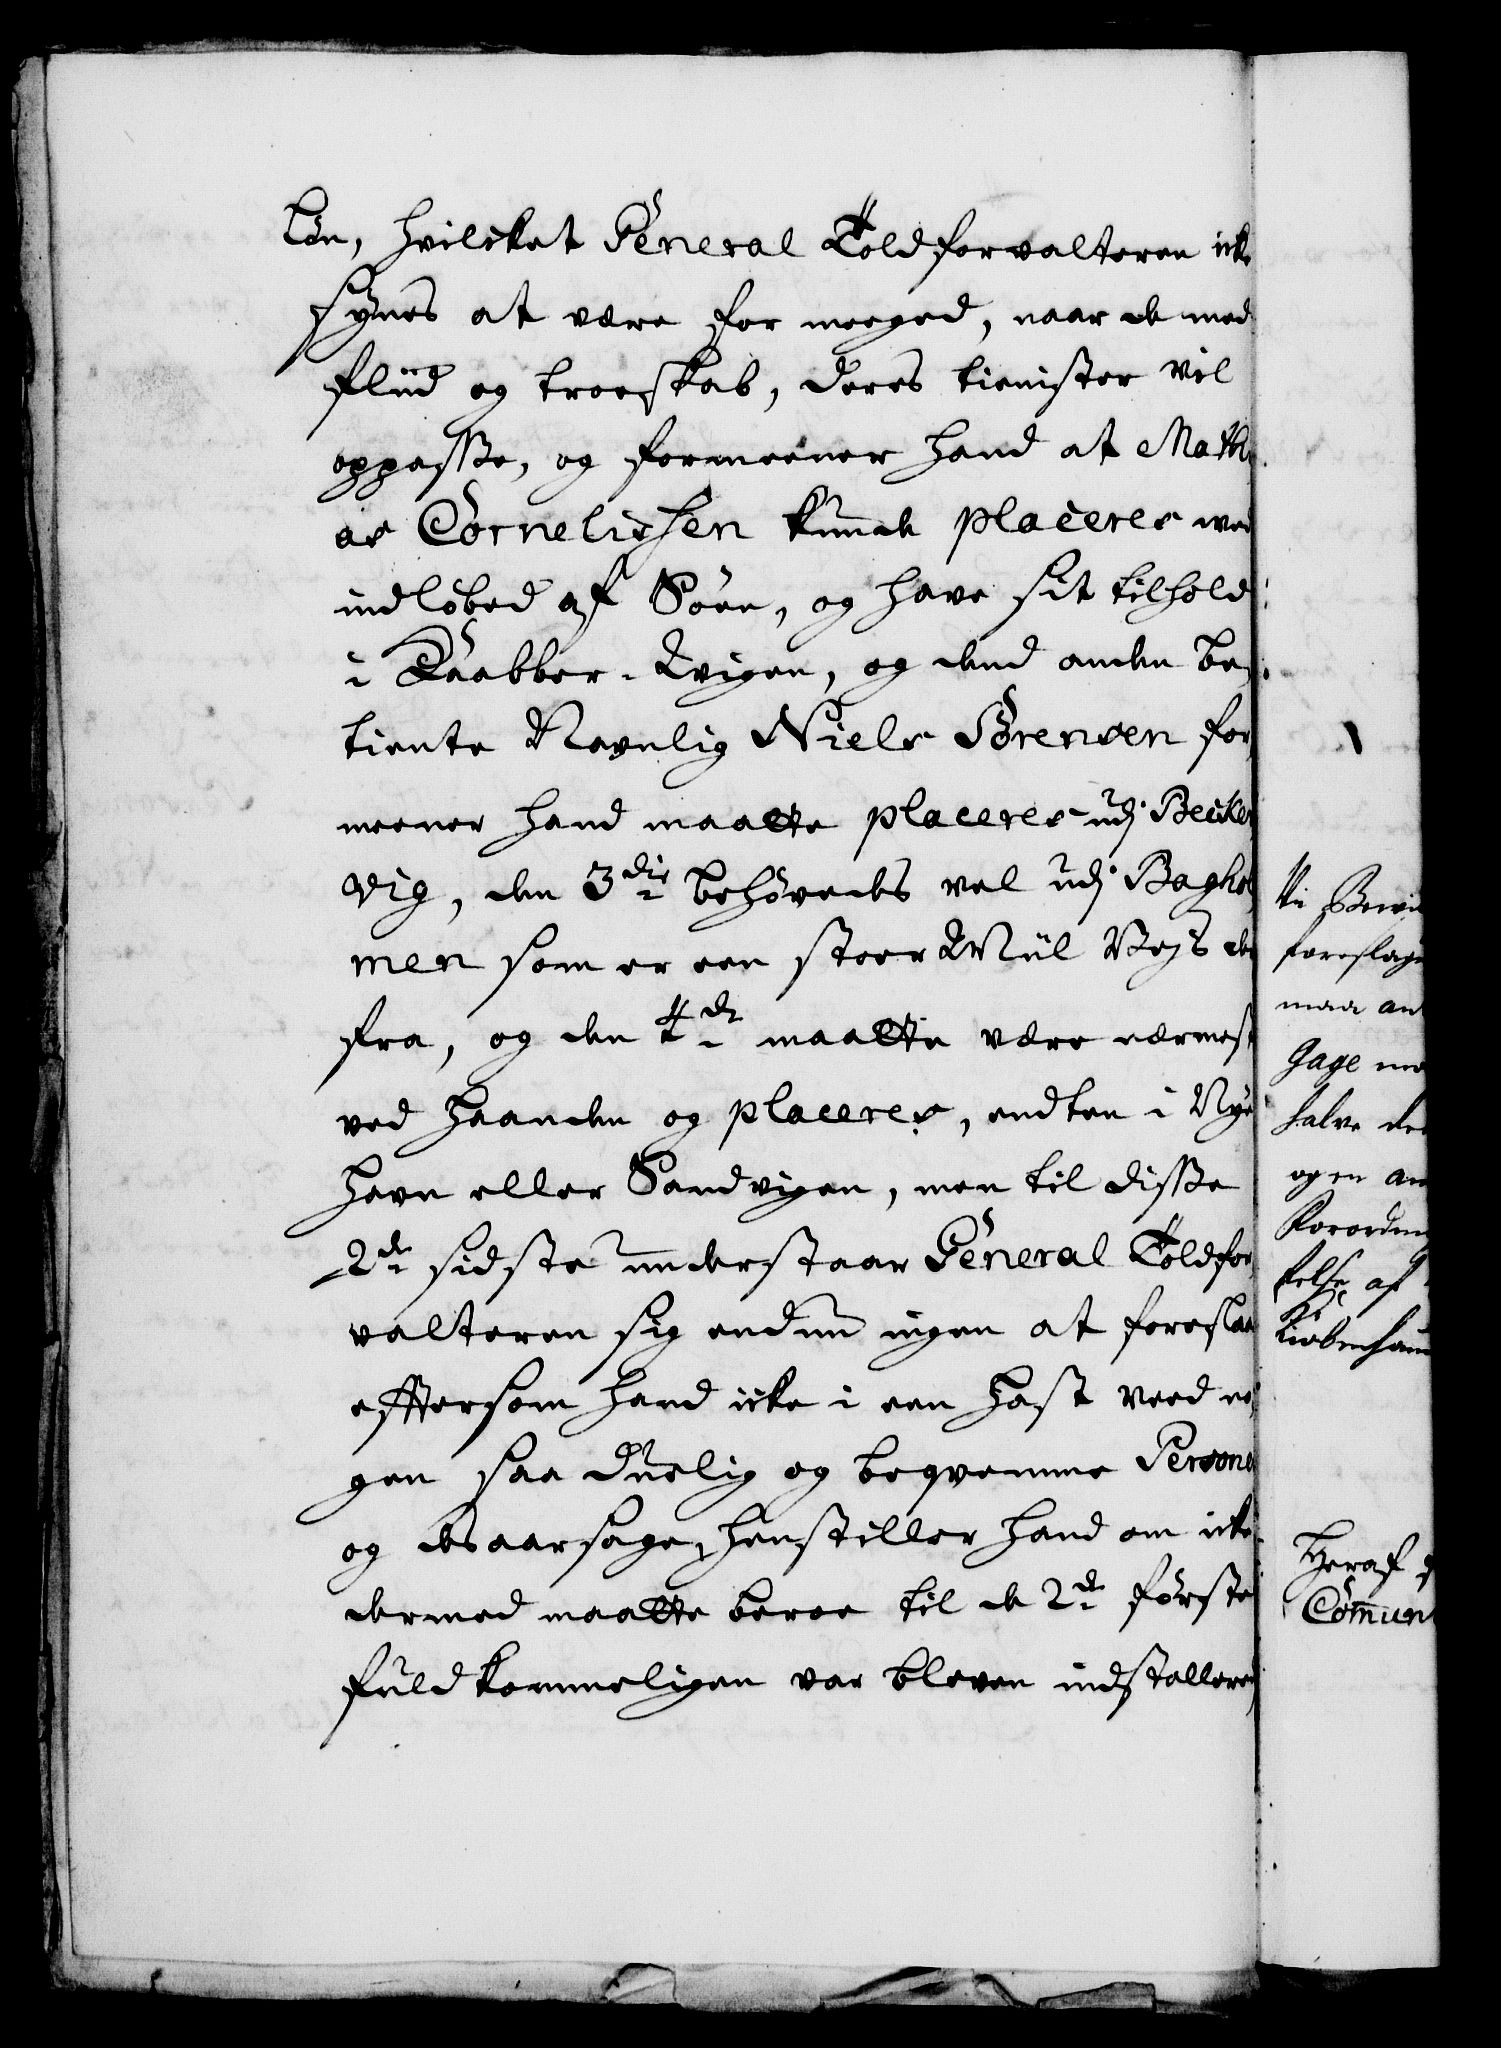 Løn, hvilcket General Toldforvalteren icke
synes at være for meeged, naar de med
fliid og troeskab, deres tienister vil
oppasse, og formeener hand at Mathi
as Cornelissen kunde placeres ved
indløbed af Søen, og have sit tilhold
i Kaabber-Qvigen, og dend anden be,
tiente Navnlig Niels Sørensen for,
meener hand maatte placeres udj Becker
vig, den 3die behøvedes vel udj Baghol,
men som er een stoer Miil Vejs der
fra, og den 4de maatte være nærmest
ved Haanden og placeres, endten i Nye
Havn eller Sandvigen, men til disse
2de sidste understaar General Toldfor,
valteren sig endnu ingen at foreslaa
efftersom hand icke i een Hast veed no,
gen saa duelig og beqvemme Persone
og des aarsage, henstiller hand om icke
dermed maatte beroe til de 2de første
fuldkommeligen var bleven indstallered,
Vi
foreslag
maa an
Gage
halve
og en an
Forordn
af
Kiøbenhavn
Heraf
Commun